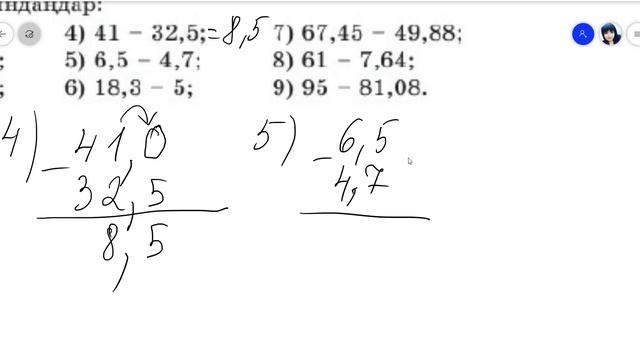 ындаңдар:
4) 41 − 32,5; = 8,5 7) 67,45 − 49,88;
; 5) 6,5 − 4,7; 8) 61 − 7,64;
; 6) 18,3 − 5; 9) 95 − 81,08.
4) − 41,0 5) − 6,5
32,5 4,7
8,5